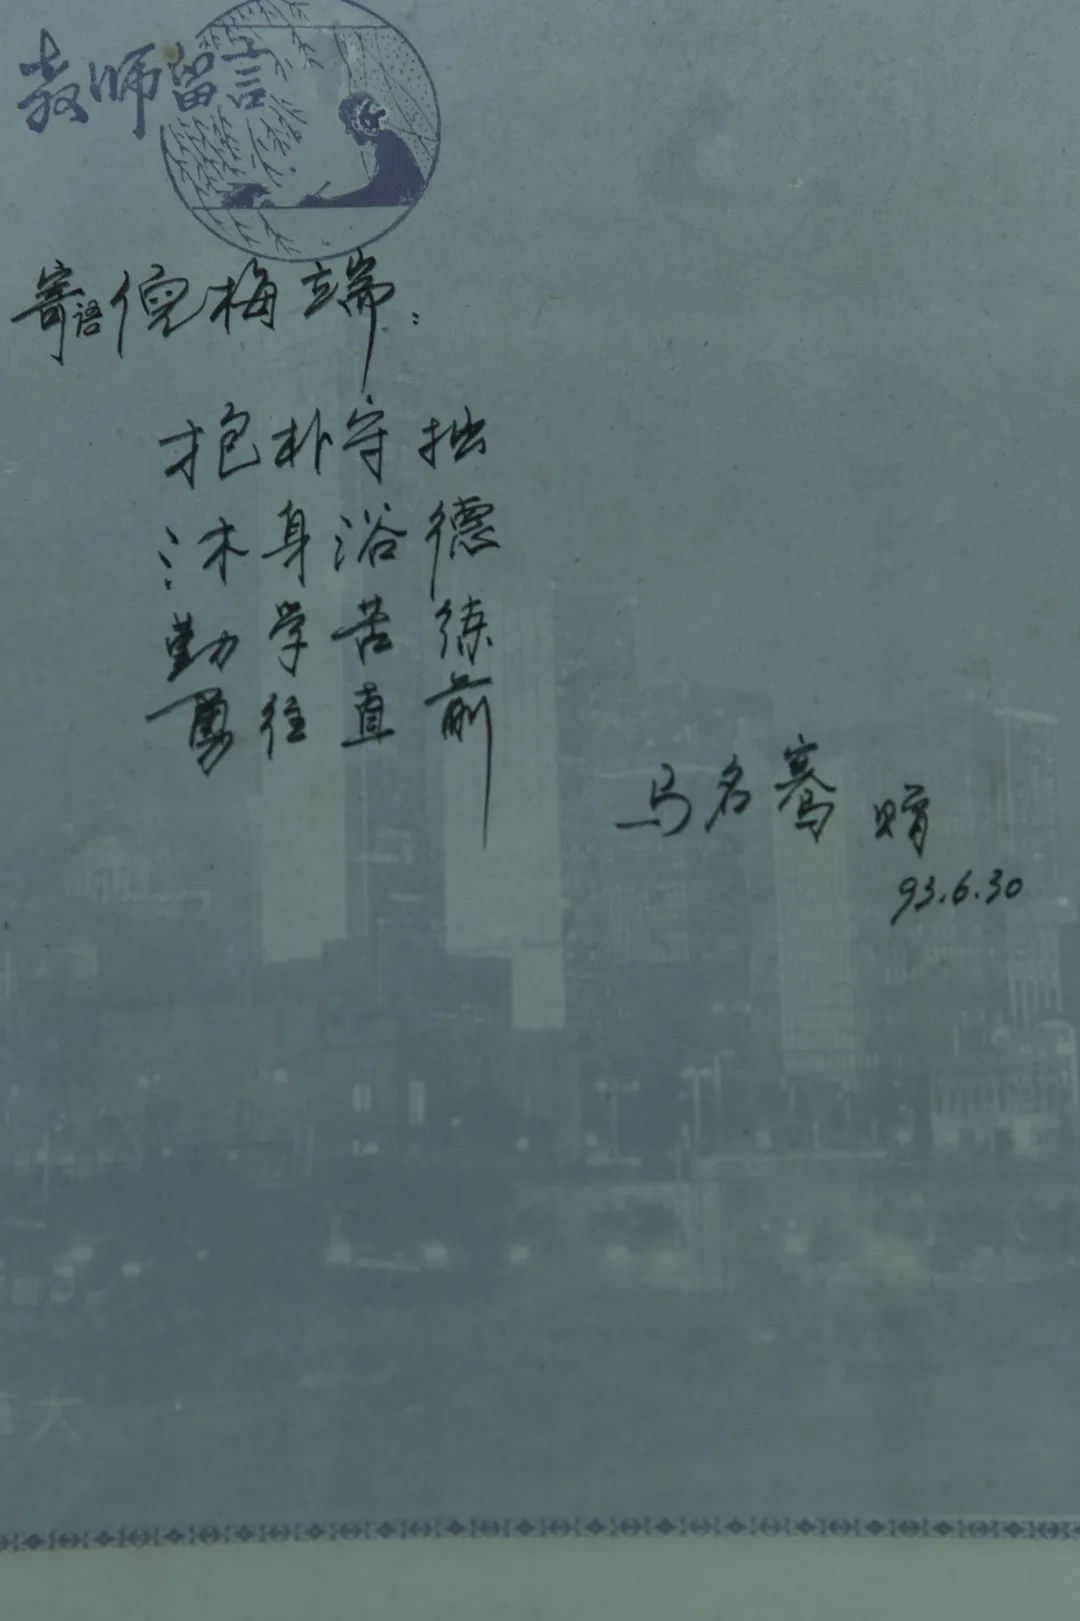 教师留言
寄语倪梅端：
抱朴守拙
沐身浴德
勤学苦练
勇往直前
马名骞 赠
93.6.30
大